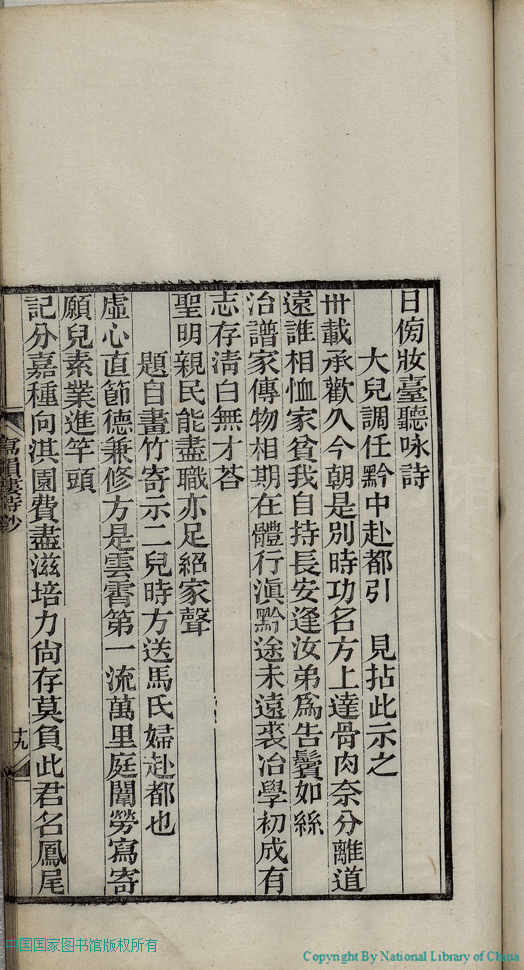 日傍妝臺聽咏詩
大兒調任黔中赴都引　見拈此示之
卅載承歡久今朝是別時功名方上達骨肉奈分離道
遠誰相恤家貧我自持長安逢汝弟爲告鬢如絲
治譜家傳物相期在體行滇黔途未遠裘冶學初成有
志存淸白無才荅
聖明親民能盡職亦足紹家聲
題自畫竹寄示二兒時方送馬氏婦赴都也
虛心直節德兼修方是雲霄第一流萬里庭闈勞寫寄
願兒素業進竿頭
記分嘉種向淇園費盡滋培力尙存莫負此君名鳳尾
詩鈔
十九
中国国家图书馆版权所有
Copyright By National Library of China